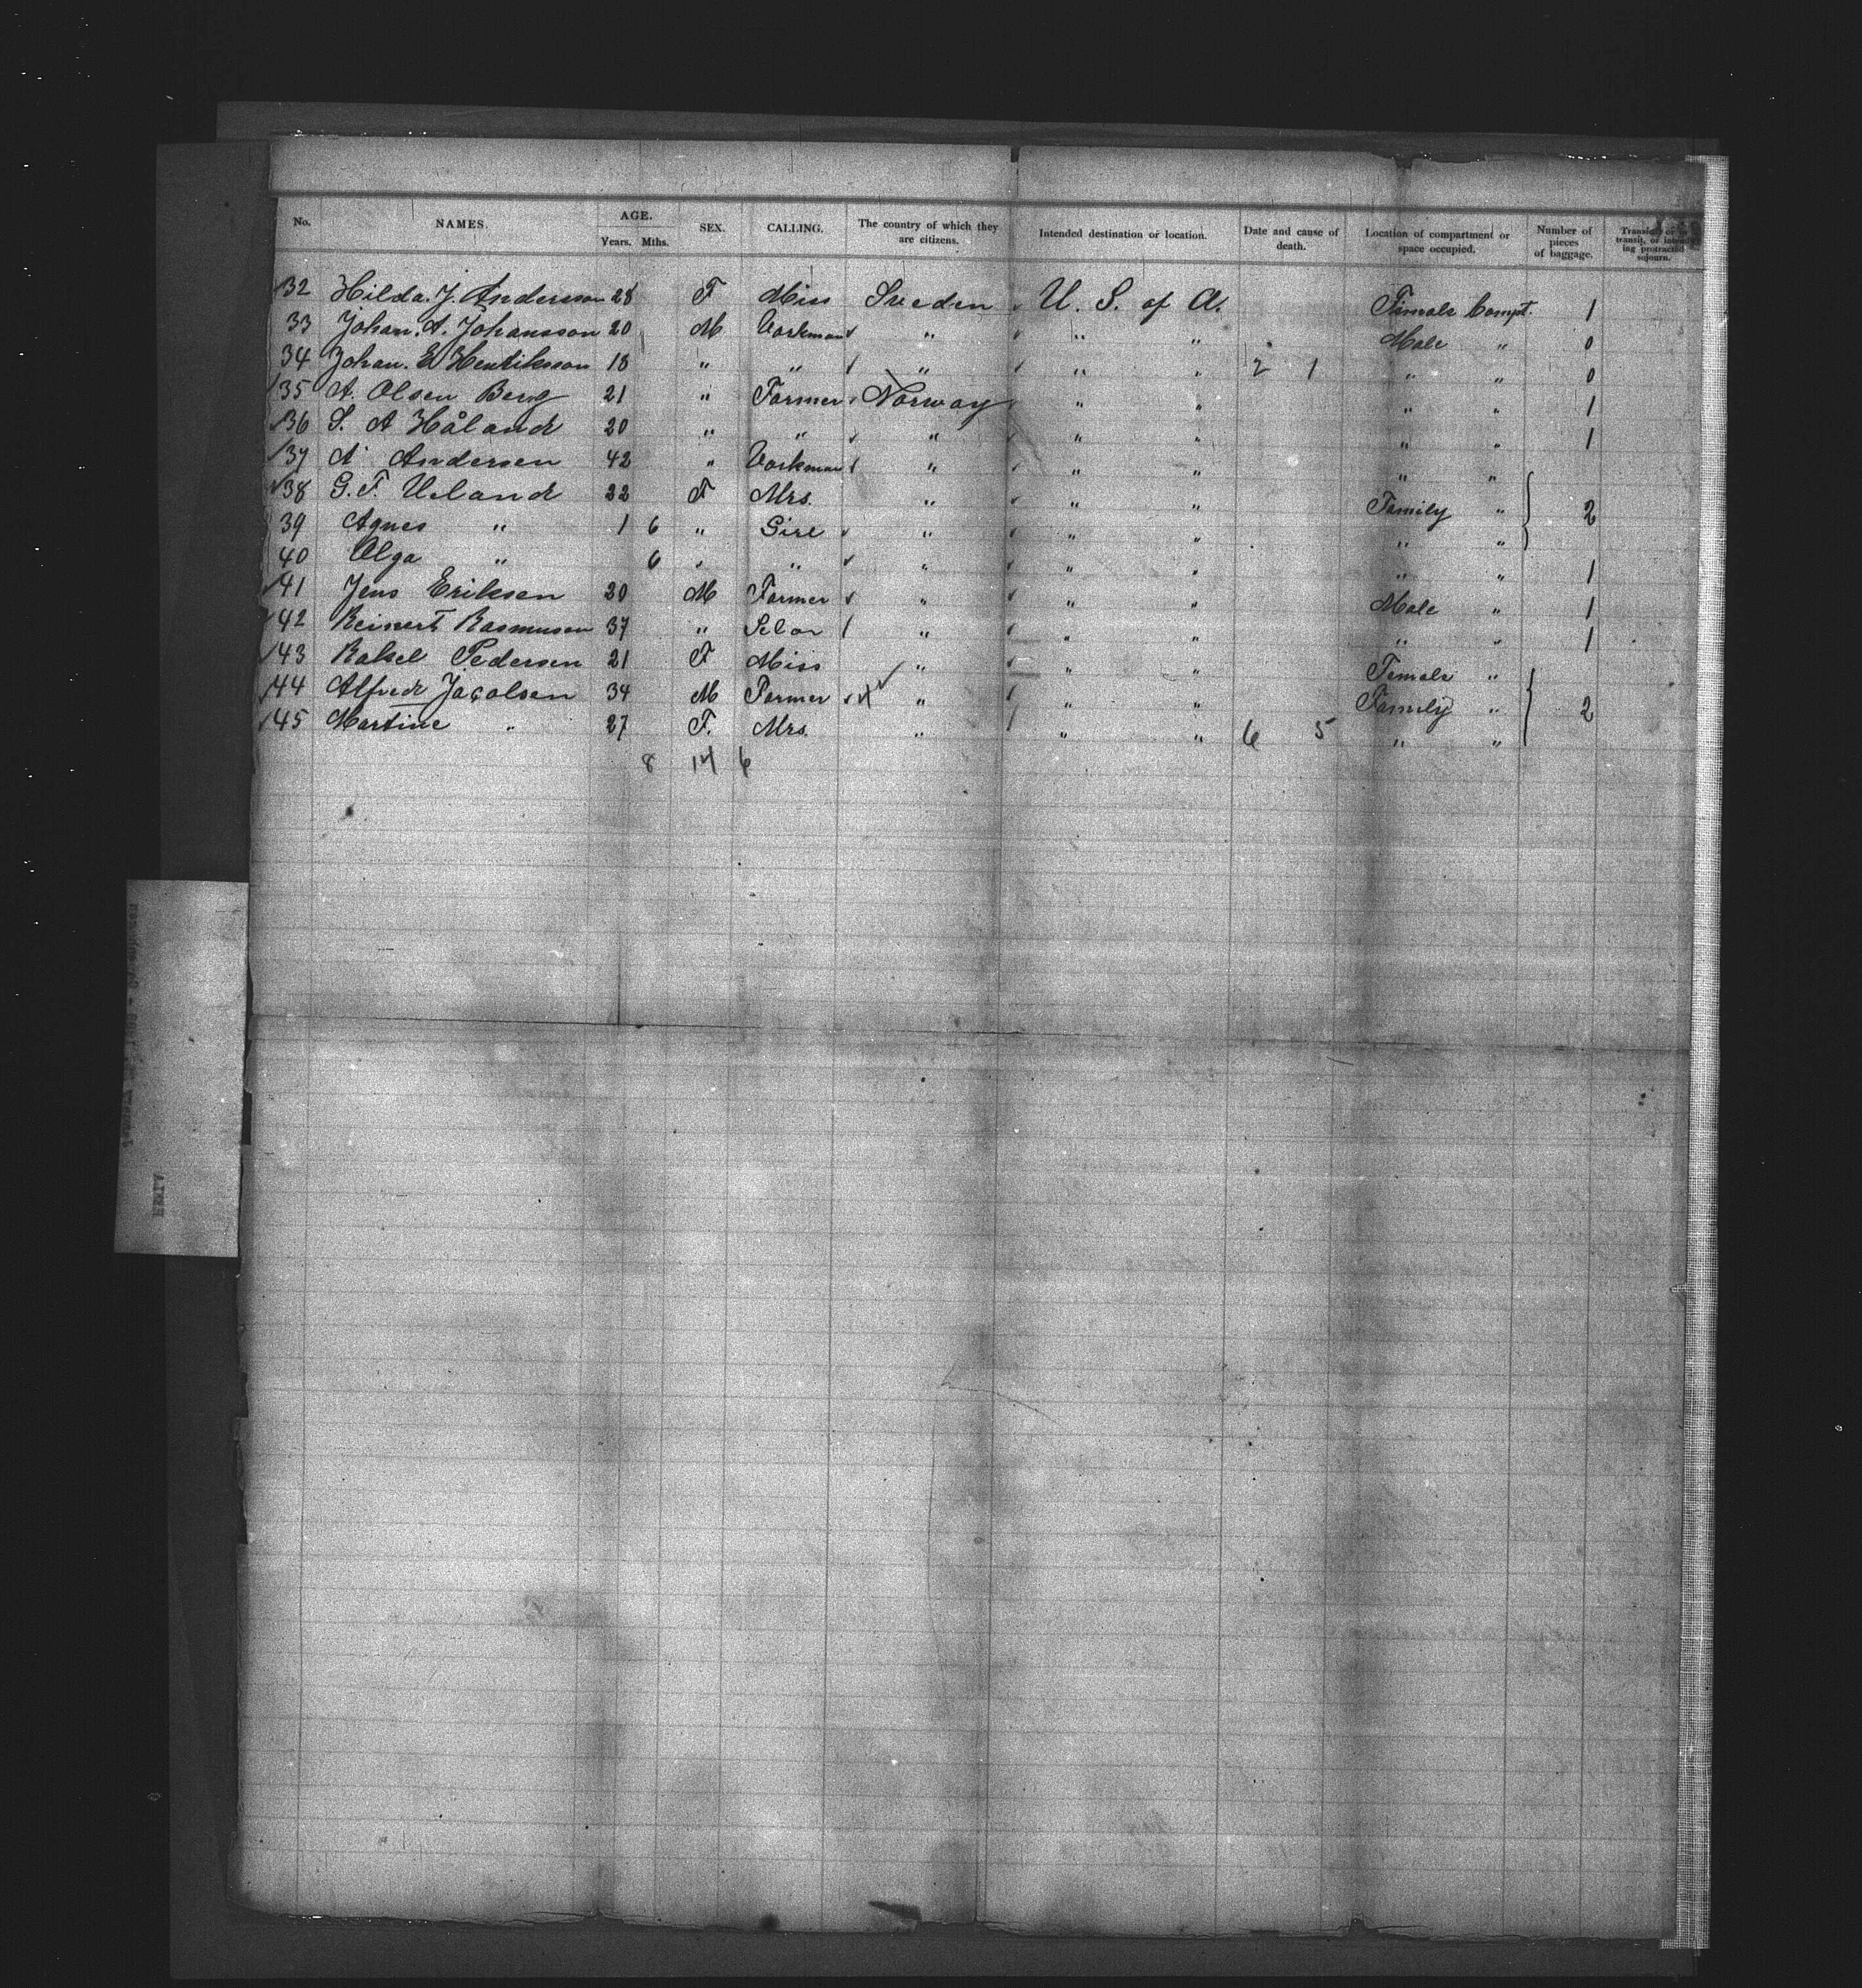 No. NAMES. AGE. Years. Mths. SEX. CALLING. The country of which they are citizens. Intended destination or location. Date and cause of death. Location of compartment or space occupied. Number of pieces of baggage. Transient or in transit, or intending protracted sojourn.
32 Hilda. J. Andersson 28 F Miss Sveden U. S. of A. Female Compt. 1
33 Johan. A. Johansson 20 M Workman " " " Male " 0
34 Johan. E. Hendriksson 18 " " " " " 2 1 " " 0
35 A. Olsen Berg 21 " Farmer Norway " " " " 1
36 S. A Håland 20 " " " " " " " 1
37 A Andersen 42 " Workman " " " " "
38 G. F. Ueland 22 F Mrs. " " " Family " 2
39 Agnes " 1 6 " Girl " " " " "
40 Olga " 6 " " " " " " " 1
41 Jens Eriksen 20 M Farmer " " " Male " 1
42 Reinert Rasmussen 37 " " " " " " 1
43 Rakel Pedersen 21 F Miss " " " Female "
44 Alfred Jacobsen 34 M Farmer " " " Family " 2
45 Martine " 27 F. Mrs. " " " 6 5 " "
8 14 6